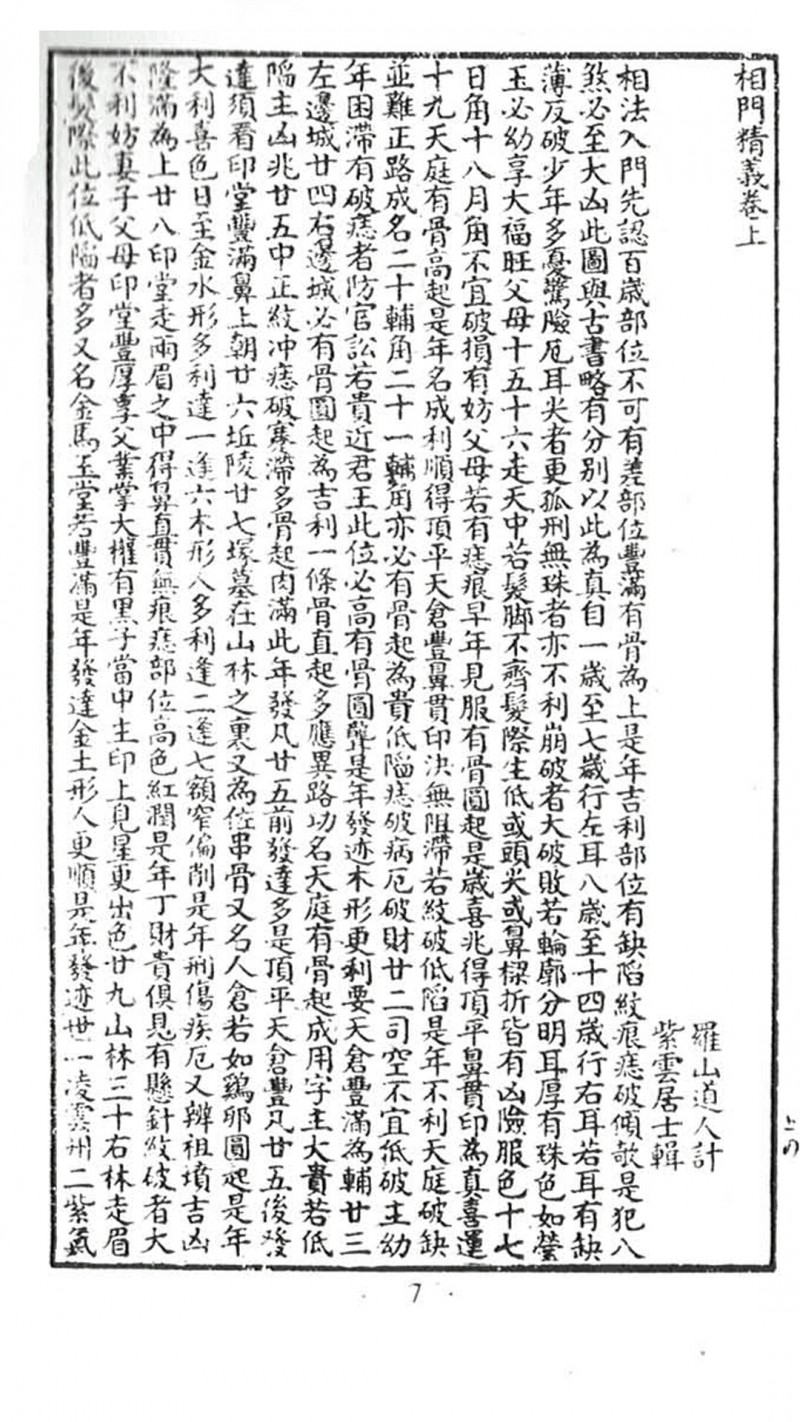 相門精義卷上
羅山道人計
紫雲居士輯
相法入門先認百歲部位不可有差部位豐滿有骨為上是年吉利部位有缺陷紋痕痣破傾欹是犯八
煞必至大凶此圖與古書略有分別以此為真自一歲至七歲行左耳八歲至十四歲行右耳若耳有缺
薄反破少年多憂驚險厄耳尖者更孤刑無珠者亦不利崩破者大破敗若輪廓分明耳厚有珠色如瑩
玉必幼享大福旺父母十五十六走天中若髮脚不齊髮際生低或頭尖或鼻樑折皆有凶險服色十七
日角十八月角不宜破損有妨父母若有痣痕早年見服有骨圓起是歲喜兆得頂平鼻貫印為真喜運
十九天庭有骨高起是年名成利順得頂平天倉豐鼻貫印決無阻滯若紋破低陷是年不利天庭破缺
並難正路成名二十輔角二十一輔角亦必有骨起為貴低陷痣破病厄破財廿二司空不宜低破主幼
年困滯有破痣者防官訟若貴近君王此位必高有骨圓聳是年發迹木形更利要天倉豐滿為輔廿三
左邊城廿四右邊城必有骨圓起為吉利一條骨直起多應異路功名天庭有骨起成用字主大貴若低
陷主凶兆廿五中正紋冲痣破寨滯多骨起肉滿此年發凡廿五前發達多是頂平天倉豐凡廿五後發
達須看印堂豐滿鼻上朝廿六坵陵廿七塚墓在山林之裏又為位串骨又名人倉若如鷄卵圓起是年
大利喜色日至金水形多利達一逢六木形人多利逢二逢七額窄偏削是年刑傷疾厄又辨祖墳吉凶
隆滿為上廿八印堂走兩眉之中得鼻直貫無痕痣部位高色紅潤是年丁財貴俱見有懸針紋破者大
不利妨妻子父母印堂豐厚享父業掌大權有黑子當中主印上見星更出色廿九山林三十右林走眉
後髮際此位低陷者多又名金馬玉堂若豐滿是年發達金土形人更順是年發迹卅一凌雲卅二紫氣
7